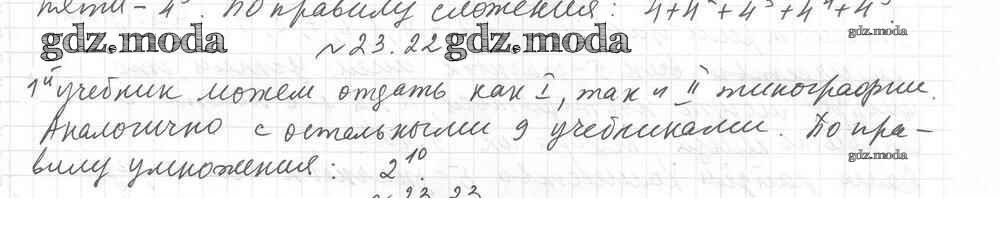 пяти - 4⁵. По правилу сложения: 4+4²+4³+4⁴+4⁵.
gdz.moda ~23.22 gdz.moda gdz.moda
1й учебник можем отдать как I, так и II типографии.
Аналогично с остальными 9 учебниками. По пра-
gdz.moda
вилу умножения: 2¹⁰.
~23.23